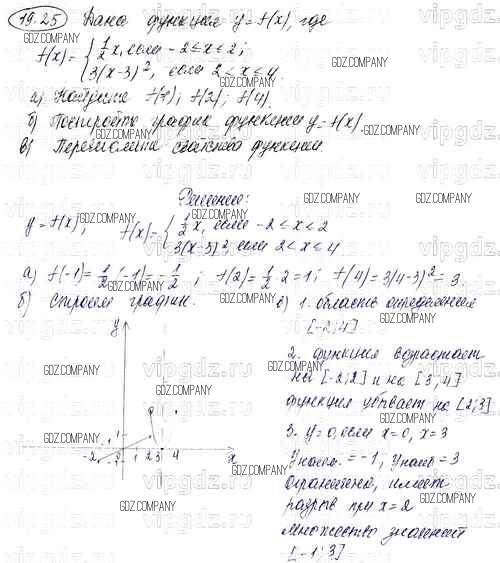 19.25 Дана функция y=f(x), где
f(x)= { 1/2 x, если -2≤x≤2;
3(x-3)², если 2<x≤4.
а) Найдите f(-1); f(2); f(4).
б) Постройте график функции y=f(x).
в) Перечислите свойства функции
Решение:
y=f(x); f(x)= { 1/2 x, если -2≤x≤2
3(x-3)², если 2<x≤4
а) f(-1)= 1/2·(-1)= -1/2; f(2)= 1/2·2=1; f(4)=3(4-3)²=3.
б) Строим график.
y
1
-2 -1 1 2 3 4 x
в) 1. область определения
[-2;4]
2. функция возрастает
на [-2;2] и на [3;4]
функция убывает на [2;3]
3. y=0, если x=0, x=3
yнаим.=-1, yнаиб=3
ограничена, имеет
разрыв при x=2
множество значений
[-1;3]
GDZ.COMPANY
vipgdz.ru